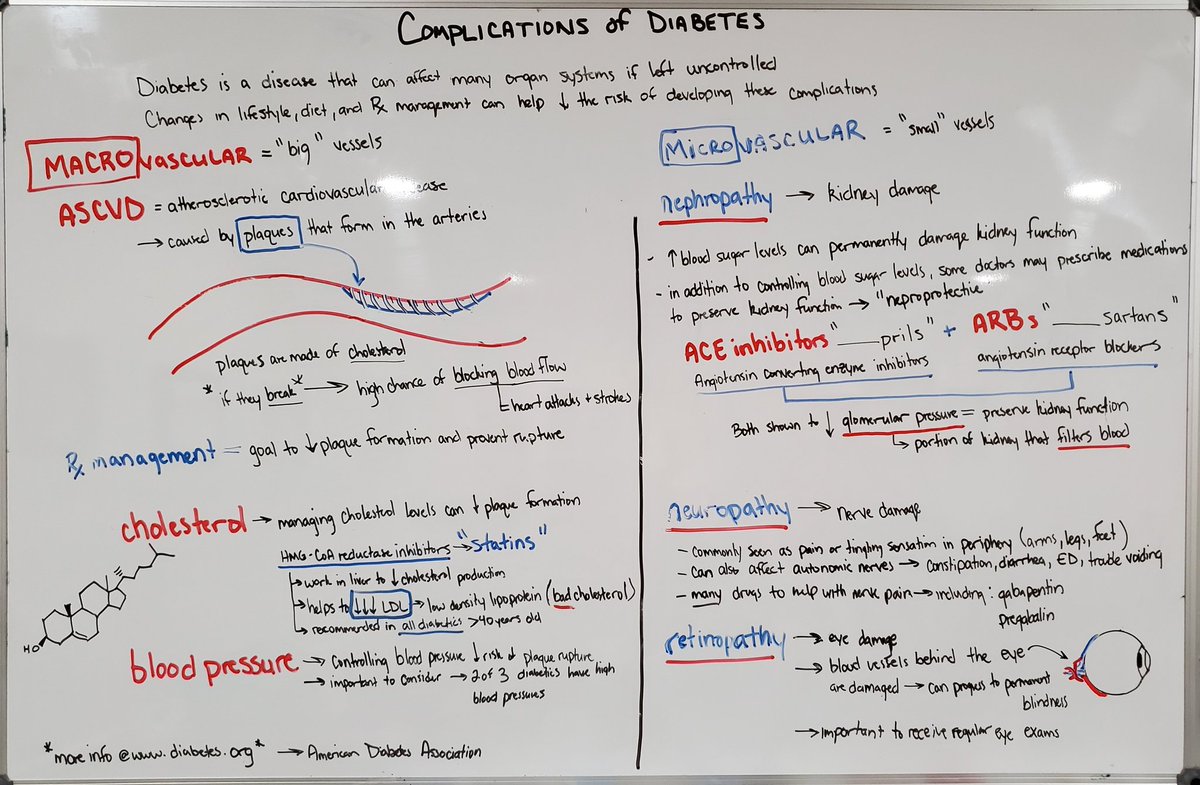 COMPLICATIONS of DIABETES
Diabetes is a disease that can affect many organ systems if left uncontrolled
Changes in lifestyle, diet, and Rx management can help ↓ the risk of developing these complications
MACROVASCULAR = "big" vessels
ASCVD = atherosclerotic cardiovascular disease
→ caused by plaques that form in the arteries
plaques are made of cholesterol
* if they break* → high chance of blocking blood flow
heart attacks + strokes
Rx management = goal to ↓ plaque formation and prevent rupture
cholesterol → managing cholesterol levels can ↓ plaque formation
HMG-CoA reductase inhibitors → "statins"
→ work in liver to ↓ cholesterol production
→ helps to ↓↓↓ LDL → low density lipoprotein (bad cholesterol)
→ recommended in all diabetics >40 years old
HO
blood pressure → Controlling blood pressure ↓ risk of plaque rupture
→ important to consider → 2 of 3 diabetics have high
blood pressures
*more info @ www.diabetes.org* → American Diabetes Association
MicroVASCULAR = "small" vessels
nephropathy → kidney damage
- ↑ blood sugar levels can permanently damage kidney function
- in addition to controlling blood sugar levels, some doctors may prescribe medications
to preserve kidney function → "neproprotective"
ACE inhibitors "____prils" + ARBs "____sartans"
Angiotensin converting enzyme inhibitors
angiotensin receptor blockers
Both shown to ↓ glomerular pressure = preserve kidney function
→ portion of kidney that filters blood
neuropathy → nerve damage
- commonly seen as pain or tingling sensation in periphery (arms, legs, feet)
- Can also affect autonomic nerves → Constipation, diarrhea, ED, trouble voiding
- many drugs to help with nerve pain → including: gabapentin
pregabalin
retinopathy → eye damage
→ blood vessels behind the eye
are damaged → can progress to permanent
blindness
→ Important to receive regular eye exams